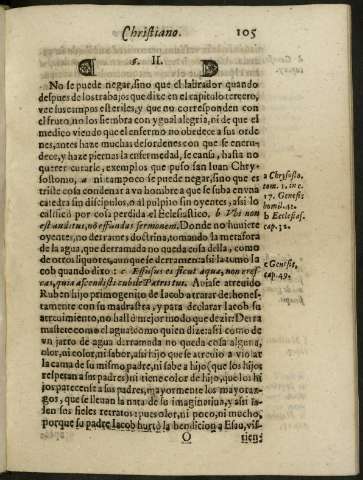 Christiano. 105
§. II.
No se puede negar, sino que el labrador quando
despues de los trabajos que dixe en el capitulo tercero,
vee sus campos esteriles, y que no corresponden con
el fruto, no los siembra con ygual alegria, ni de que el
medico viendo que el enfermo no obedece a sus orde
nes, antes haze muchas desordenes con que se encru-
dece, y haze piernas la enfermedad, se cansa, hasta no
querer curarle, exemplos que puso san Iuan Chry-
sostomo, a ni tampoco se puede negar, sino que es
triste cosa condenar a vn hombre a que se suba en vna
catedra sin dicipulos, o al pulpito sin oyentes, assi lo
calificò por cosa perdida el Eclesiastico. b Vbi non
est auditus, no effundas sermonem. Donde no huuiere
oyentes, no derrames doctrina, tomando la metafora
de la agua, que derramada no queda cosa della, como
de otros liquores, aunque se derramen: assi la tomo Ia
cob quando dixo: c Effusus es sicut aqua, non cres-
cas, quia ascendisti cubile Patris tui. Auiase atreuido
Ruben hijo primogenito de Iacob a tratar deshones-
tamente con su madrastra, y para declarar Iacob su
atreuimiento, no hallò mejor modo que dezir: Derra
mastete como el agua: como quien dize: assi como de
vn jarro de agua derramada no queda cosa alguna,
olor, ni color, ni sabor, assi hijo que se atreuio a violar
la cama de su mismo padre, ni sabe a hijo (que los hijos
respetan a sus padres) ni tiene color de hijo, que los hi
jos parecense a sus padres, mayormente los mayoraz-
gos, que se lleuan la nata de su imaginatiua, y assi sa-
len sus fieles retratos: pues olor, ni poco, ni mucho,
porque su padre Iacob hurtò la bendicion a Esau, vis-
O tien-
a Chrysosto.
tom. 1. in c.
17. Genesis
homil. 41.
b Ecclesias.
cap. 32.
c Genesis,
cap. 49.